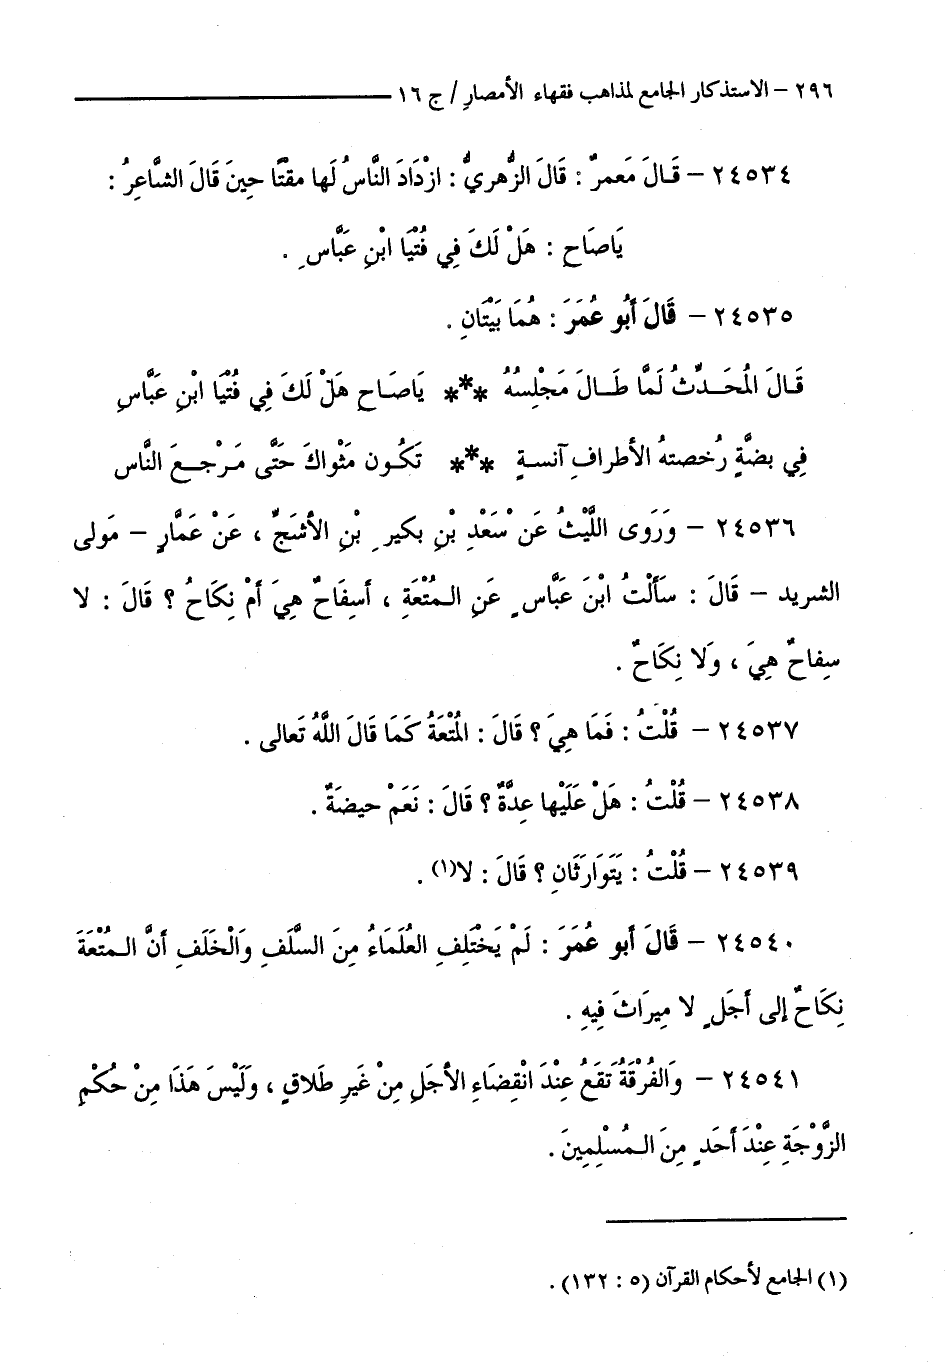 ٢٩٦ – الاستذكار الجامع لمذاهب فقهاء الأمصارِ / ج ١٦
٢٤٥٣٤ – قَالَ مَعمرٌ : قَالَ الزُّهريُّ : ازْدَادَ النَّاسُ لَها مقتًا حينَ قَالَ الشَّاعِرُ :
يَاصَاحِ : هَلْ لَكَ فِي فُتْيَا ابْنِ عَبَّاسٍ .
٢٤٥٣٥ – قَالَ أَبُو عُمَرَ : هُمَا بَيْتَانِ .
قَـالَ المُحَـدِّثُ لَمَّا طَـالَ مَجْلِسُهُ *** يَاصَـاحِ هَلْ لَكَ فِي فُتْيَا ابْنِ عَبَّاسِ
فِي بضَّةٍ رُخصتهُ الأطرافِ آنسـةٍ *** تَكُـون مَثْواكَ حَتَّى مَـرْجـعَ النَّاس
٢٤٥٣٦ – وَرَوَى اللَّيْثُ عَنْ سَعْدِ بْنِ بكيرِ بْنِ الأَشَجِّ ، عَنْ عَمَّارٍ – مَولى
الشريد – قَالَ : سَأَلْتُ ابْنَ عَبَّاسٍ عَنِ الـمُتْعَةِ ، أسفَاحٌ هِيَ أمْ نِكَاحٌ ؟ قَالَ : لا
سِفاحٌ هِيَ ، وَلا نِكَاحٌ .
٢٤٥٣٧ – قُلْتُ : فَمَا هِيَ ؟ قَالَ : المُتْعَةُ كَمَا قَالَ اللَّهُ تَعالى .
٢٤٥٣٨ – قُلْتُ : هَلْ عَلَيْها عِدَّةٌ ؟ قَالَ : نَعَمْ حيضَةٌ .
٢٤٥٣٩ – قُلْتُ : يَتَوَارَثَانِ ؟ قَالَ : لا(١) .
٢٤٥٤٠ – قَالَ أبو عُمَرَ : لَمْ يَخْتَلِفِ العُلَمَاءُ مِنَ السَّلَفِ وَالْخَلَفِ أنَّ الـمُتْعَةَ
نِكَاحٌ إلى أَجَلٍ لا مِيرَاثَ فِيهِ .
٢٤٥٤١ – وَالفُرْقَةُ تَقَعُ عِنْدَ انْقِضَاءِ الأجَلِ مِنْ غَيرِ طَلاقٍ ، وَلَيْسَ هَذَا مِنْ حُكْمِ
الزَّوْجَةِ عِنْدَ أَحَدٍ مِنَ الـمُسْلِمِينَ .
(١) الجامع لأحكام القرآن (٥ : ١٣٢) .